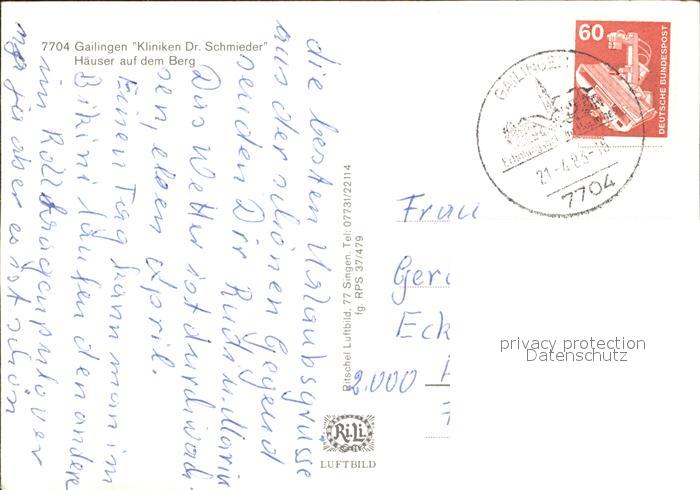 7704 Gailingen "Kliniken Dr. Schmieder"
Häuser auf dem Berg
die besten Urlaubsgrüsse
aus der schönen Gegend
senden Dir Rudi u. Maria
Das Wetter ist durchwach-
sen, eben April.
Einen Tag kann man im
Bikini laufen den andere
im Rollkragenpullover
na ja aber es ist schön
Ritschel Luftbild, 77 Singen, Tel: 07731/22114
fg. RPS 37/479
RiLi
LUFTBILD
60
DEUTSCHE BUNDESPOST
GAILINGEN
21.-4.83-16
7704
Frau
Ger
Eck
2.000
privacy protection
Datenschutz